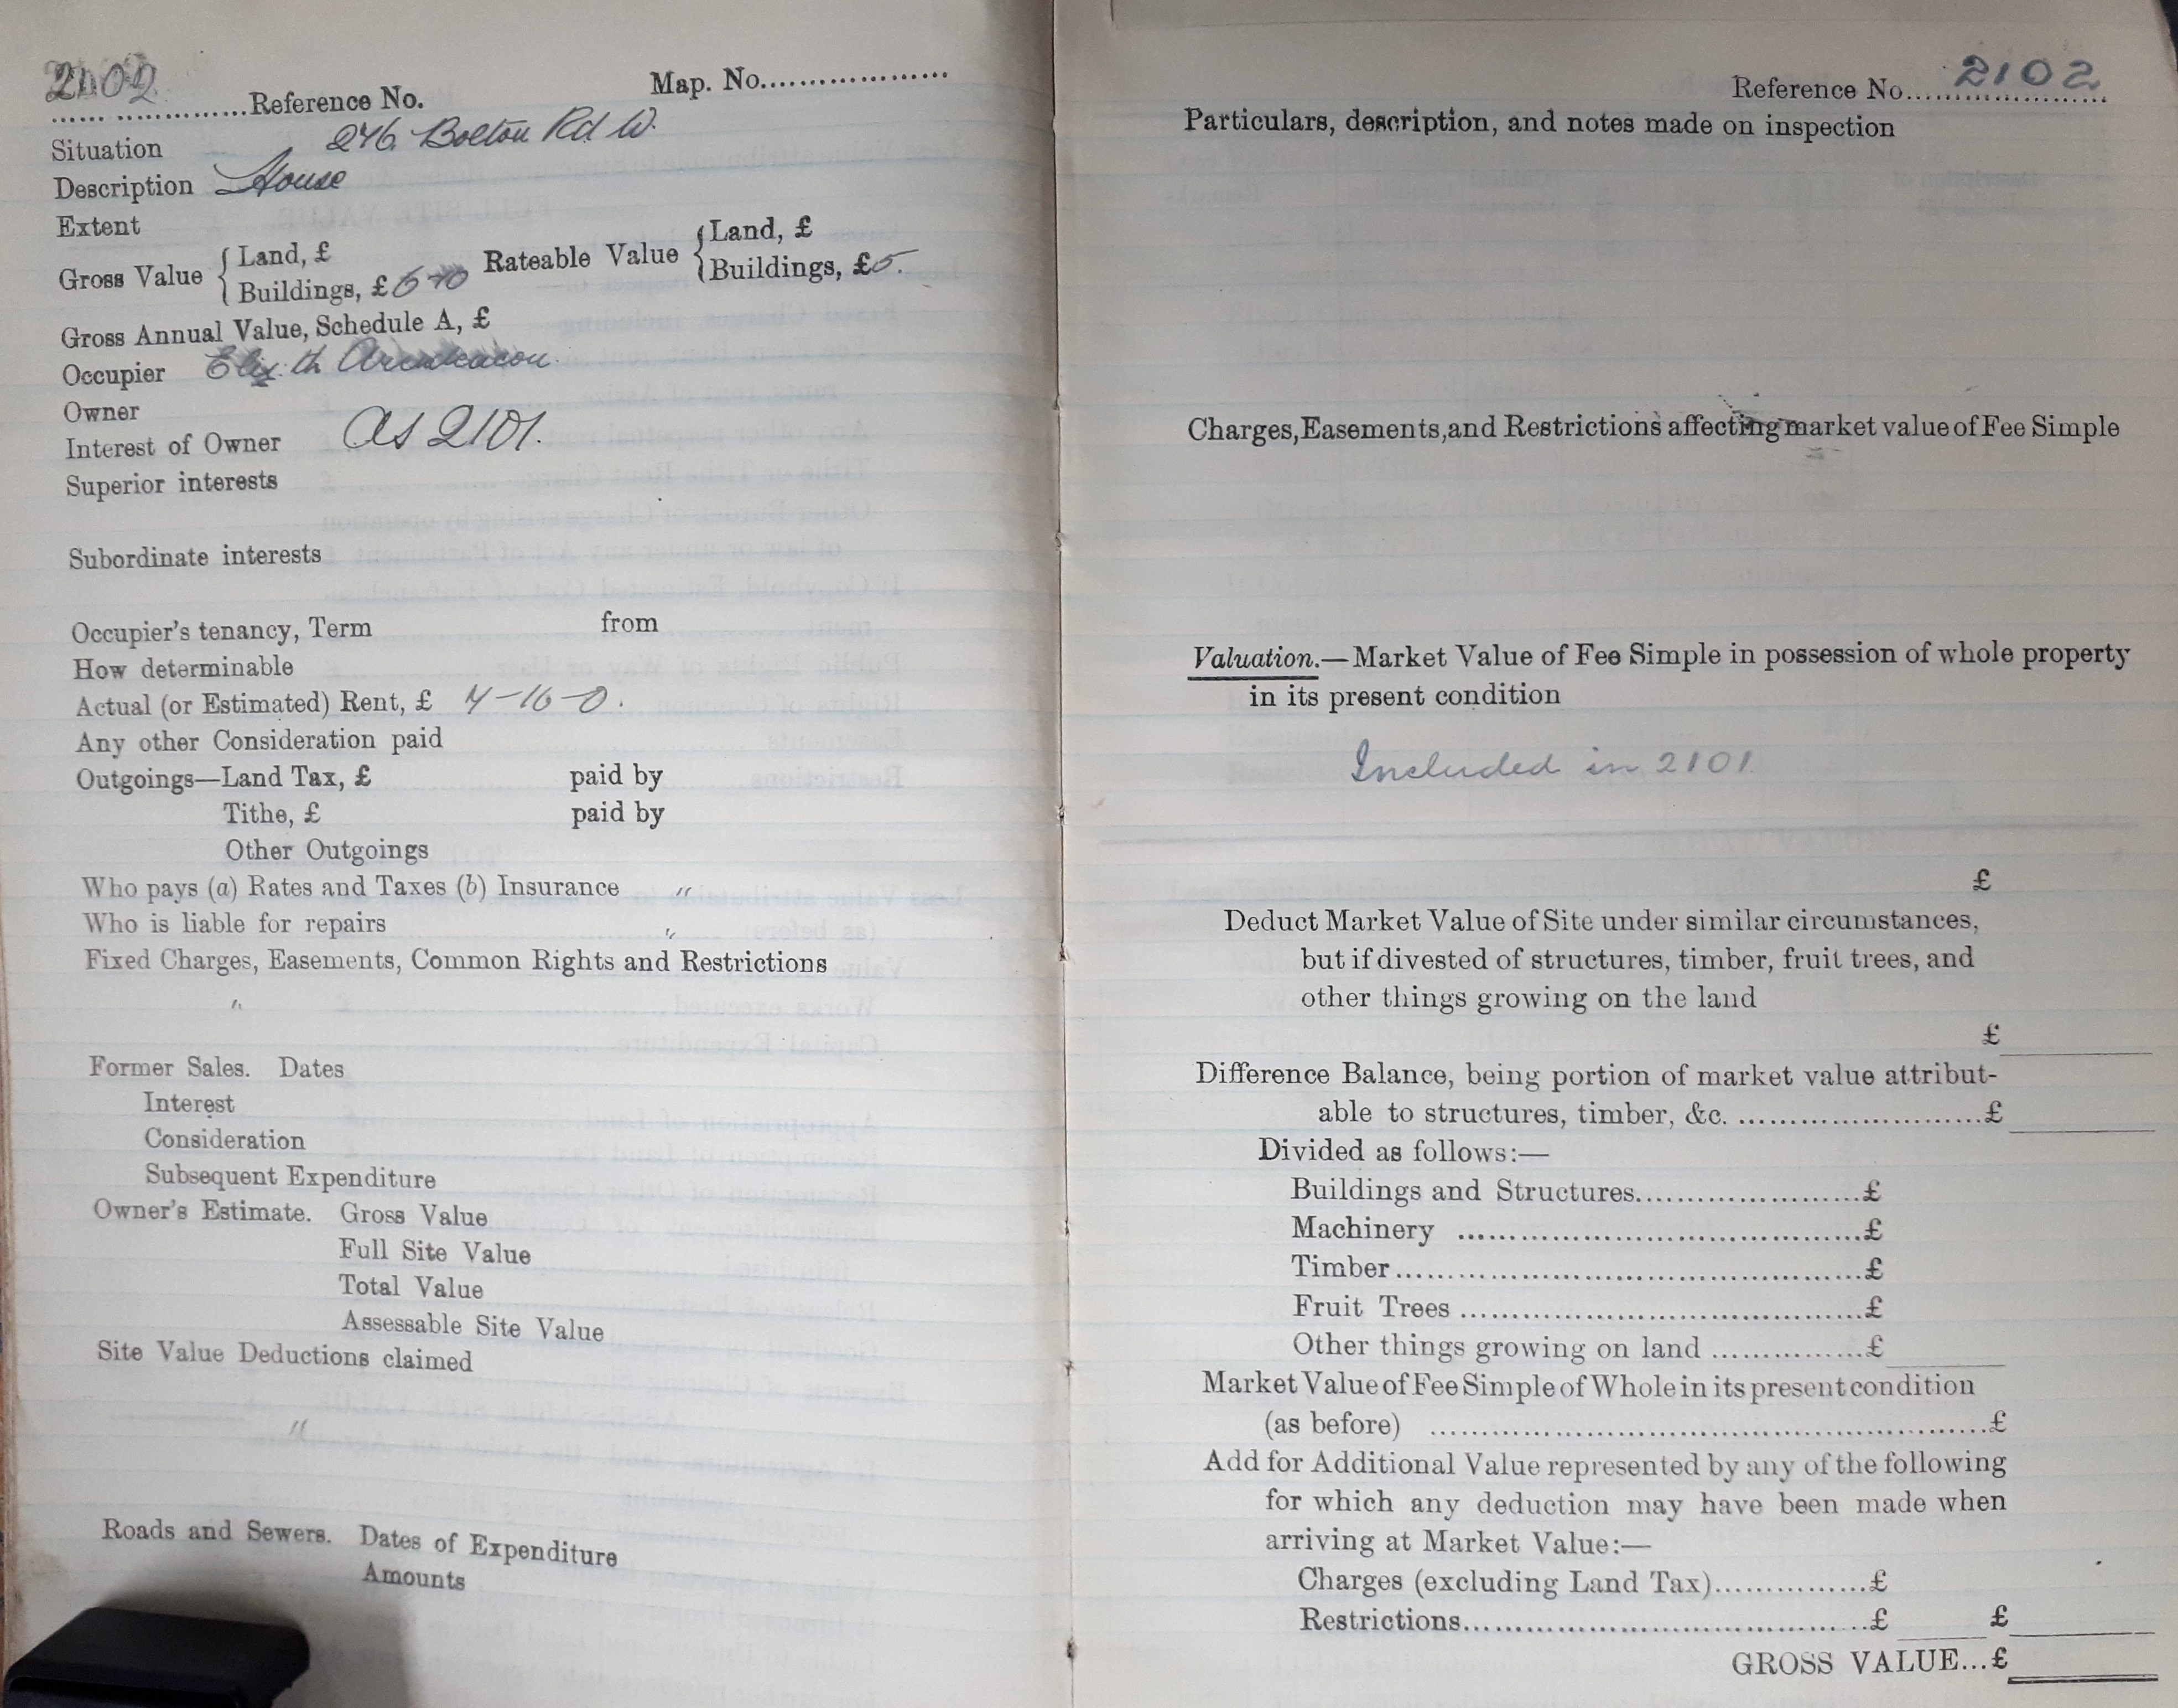 2102
Reference No. Map. No.
Situation 246 Bolton Rd W.
Description House
Extent
Gross Value { Land, £
Buildings, £6-10 Rateable Value { Land, £
Buildings, £5.
Gross Annual Value, Schedule A, £
Occupier Eliz:th
Owner
Interest of Owner As 2101.
Superior interests
Subordinate interests
Occupier's tenancy, Term from
How determinable
Actual (or Estimated) Rent, £ 4-16-0.
Any other Consideration paid
Outgoings—Land Tax, £ paid by
Tithe, £ paid by
Other Outgoings
Who pays (a) Rates and Taxes (b) Insurance "
Who is liable for repairs "
Fixed Charges, Easements, Common Rights and Restrictions
"
Former Sales. Dates
Interest
Consideration
Subsequent Expenditure
Owner's Estimate. Gross Value
Full Site Value
Total Value
Assessable Site Value
Site Value Deductions claimed
"
Roads and Sewers. Dates of Expenditure
Amounts
Reference No. 2102
Particulars, description, and notes made on inspection
Charges, Easements, and Restrictions affecting market value of Fee Simple
Valuation.—Market Value of Fee Simple in possession of whole property
in its present condition
Included in 2101.
£
Deduct Market Value of Site under similar circumstances,
but if divested of structures, timber, fruit trees, and
other things growing on the land
£
Difference Balance, being portion of market value attribut-
able to structures, timber, &c. ........................£
Divided as follows:—
Buildings and Structures......................£
Machinery ........................................£
Timber..............................................£
Fruit Trees ........................................£
Other things growing on land ...............£
Market Value of Fee Simple of Whole in its present condition
(as before) ........................................................£
Add for Additional Value represented by any of the following
for which any deduction may have been made when
arriving at Market Value:—
Charges (excluding Land Tax)...............£
Restrictions..........................................£ £
GROSS VALUE...£